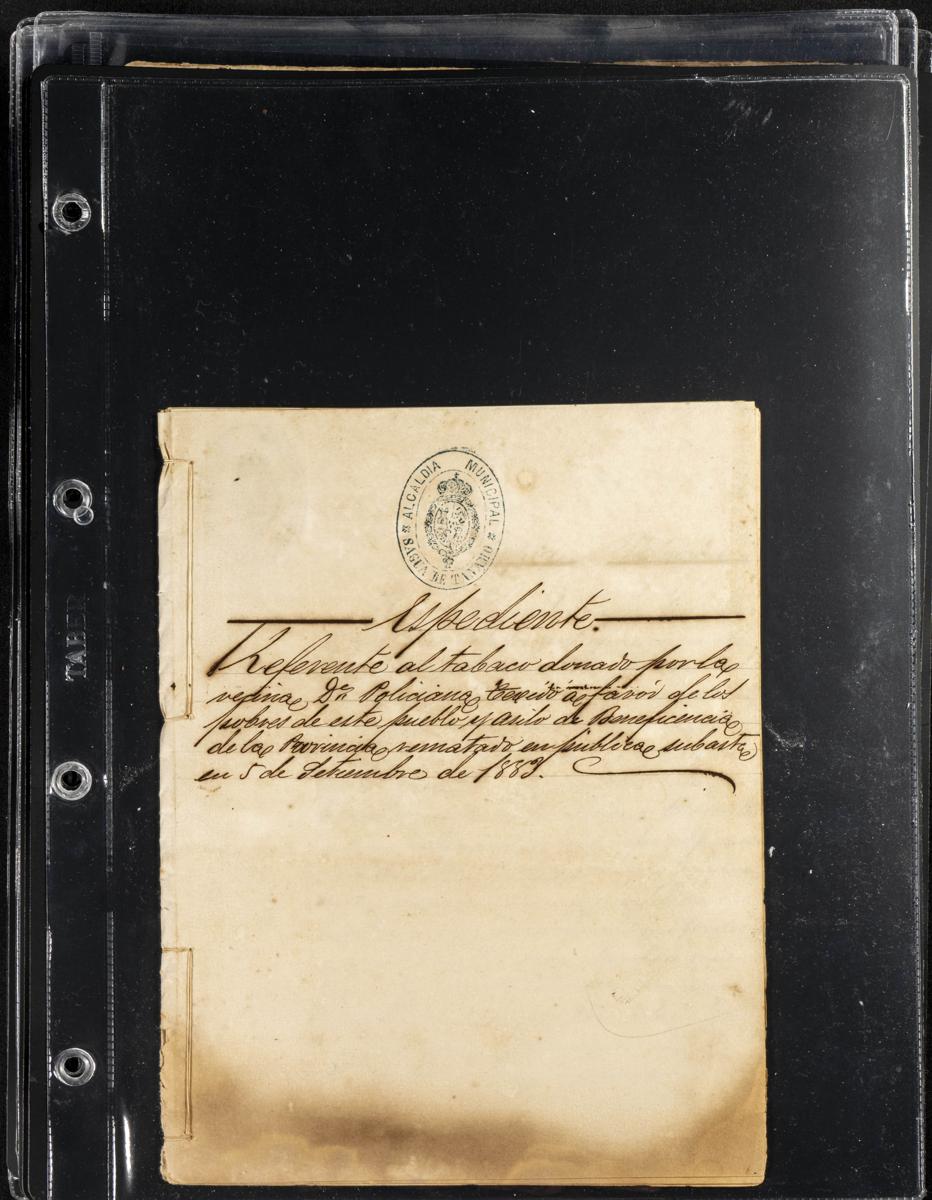 ALCALDIA MUNICIPAL
SAGUA DE TANAMO
Espediente.
Referente al tabaco donado por la
vecina Dª Policiana á favor de los
pobres de este pueblo y asilo de Beneficencia
de la Provincia rematado en publica subasta
en 5 de Setiembre de 1883.
TABER